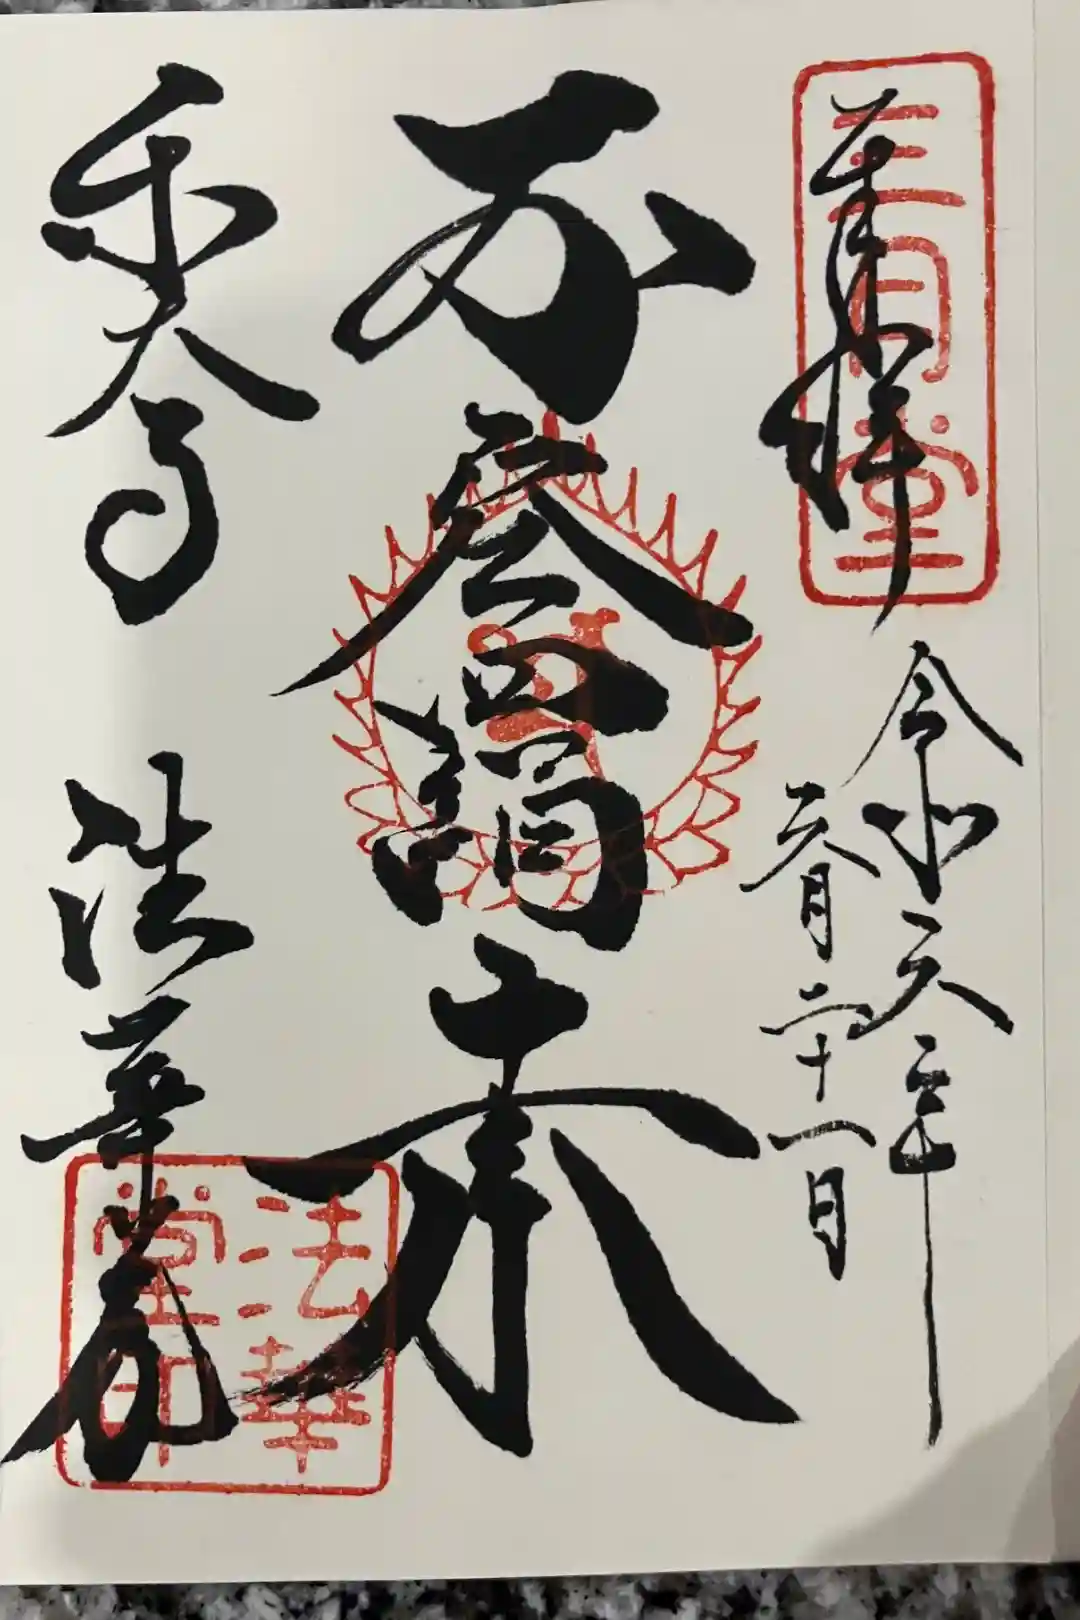 三月堂
奉拝
令和六年
六月二十一日
不空羂索
東大寺
法華堂
法華
堂印